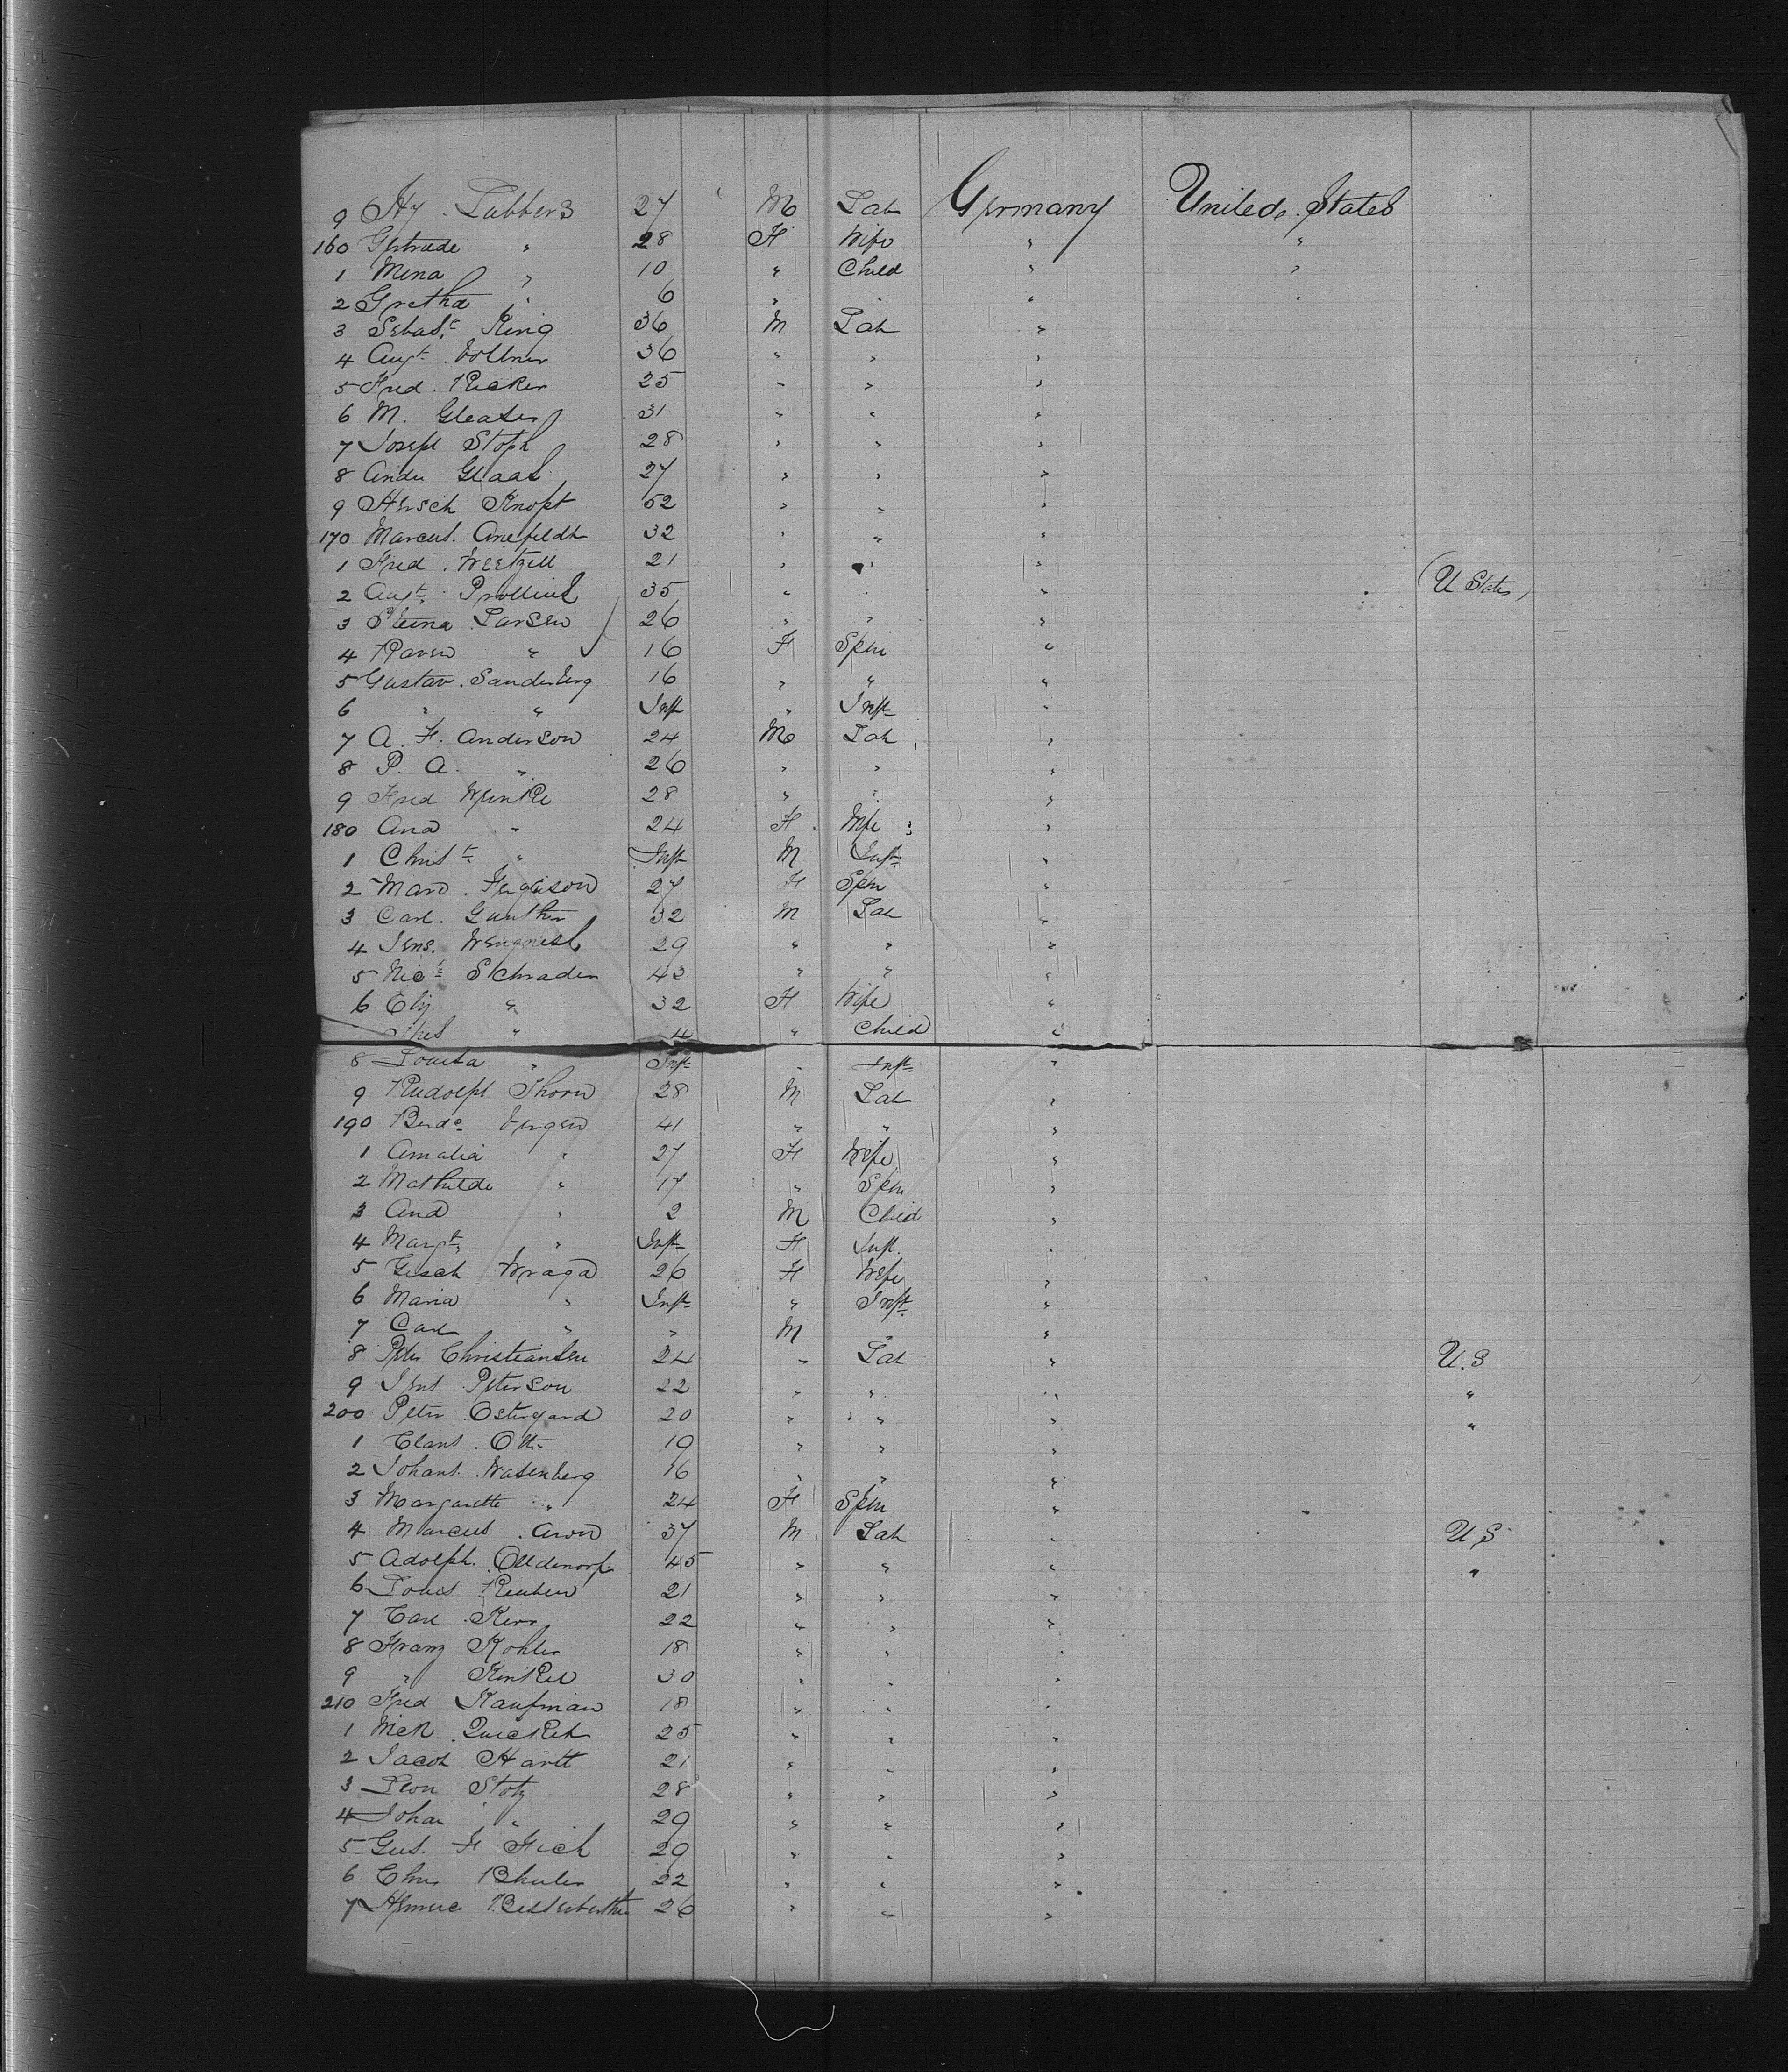 9 Hy. Lubbers 27 M Lab Germany United States
160 Gertrude " 28 F Wife " "
1 Mena " 10 " Child " "
2 Gretha " 6 " " " "
3 Sebast. King 36 M Lab "
4 Augt. Vollmer 36 " " "
5 Fred. Ricker 25 " " "
6 M. Gleaser 31 " " "
7 Joseph Stoph 28 " " "
8 Andr Glaas 27 " " "
9 Hersch Knopt 52 " " "
170 Marcus. Anefeldt 32 " " "
1 Fred. Wietzell 21 " " "
2 Augt. Prollius 35 " " " (U States)
3 Larsen 26 " " "
4 Karen " 16 F Spin "
5 Gustav. Sanderberg 16 " " "
6 " " Inft " Inft "
7 A. F. Anderson 24 M Lab "
8 P. A. " 26 " " "
9 Fred Wenke 28 " " "
180 Ana " 24 F Wife "
1 Christ " Inft M Inft "
2 Mard. Ferguison 27 F Spin "
3 Carl. Gunther 32 M Lab "
4 Jens. 29 " " "
5 Nics Schrader 43 " " "
6 Eliz " 32 F Wife "
" 4 " Child "
8 Louisa " Inft " Inft "
9 Rudolph Thorn 28 M Lab "
190 Jurgen 41 " " "
1 Amalia " 27 F Wife "
2 Mathilde " 17 " Spin "
3 And " 2 M Child "
4 Margt. " Inft F Inft. "
5 Gesch Wraga 26 F Wife "
6 Maria " Inft " Inft. "
7 Carl " " M "
8 Peter Christiansen 24 " Lab " U.S
9 Jens Peterson 22 " " " "
200 Peter Ostergard 20 " " " "
1 Claus. Ott. 19 " " "
2 Johans. Wasenberg 16 " " "
3 Margarette " 24 F Spin "
4 Marcus. Aron 37 M Lab " U.S
5 Adolph. Olldendorf 45 " " " "
6 Louis Reuben 21 " " "
7 Carl. Kern 22 " " "
8 Franz Kohler 18 " " "
9 " Kinkel 30 " " "
210 Fred Kaufman 18 " " "
1 Nick. Quickert 25 " " "
2 Jacob Hartt 21 " " "
3 Leon Stotz 28 " " "
4 Johan " 29 " " "
5 Gus. F Fick 29 " " "
6 Chris 22 " " "
7 26 " " "